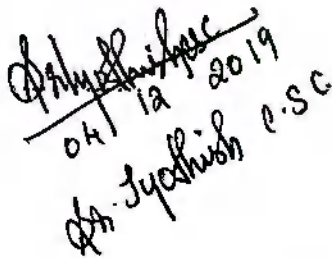 04 12 2019
Sr. Jyothish C.S.C.